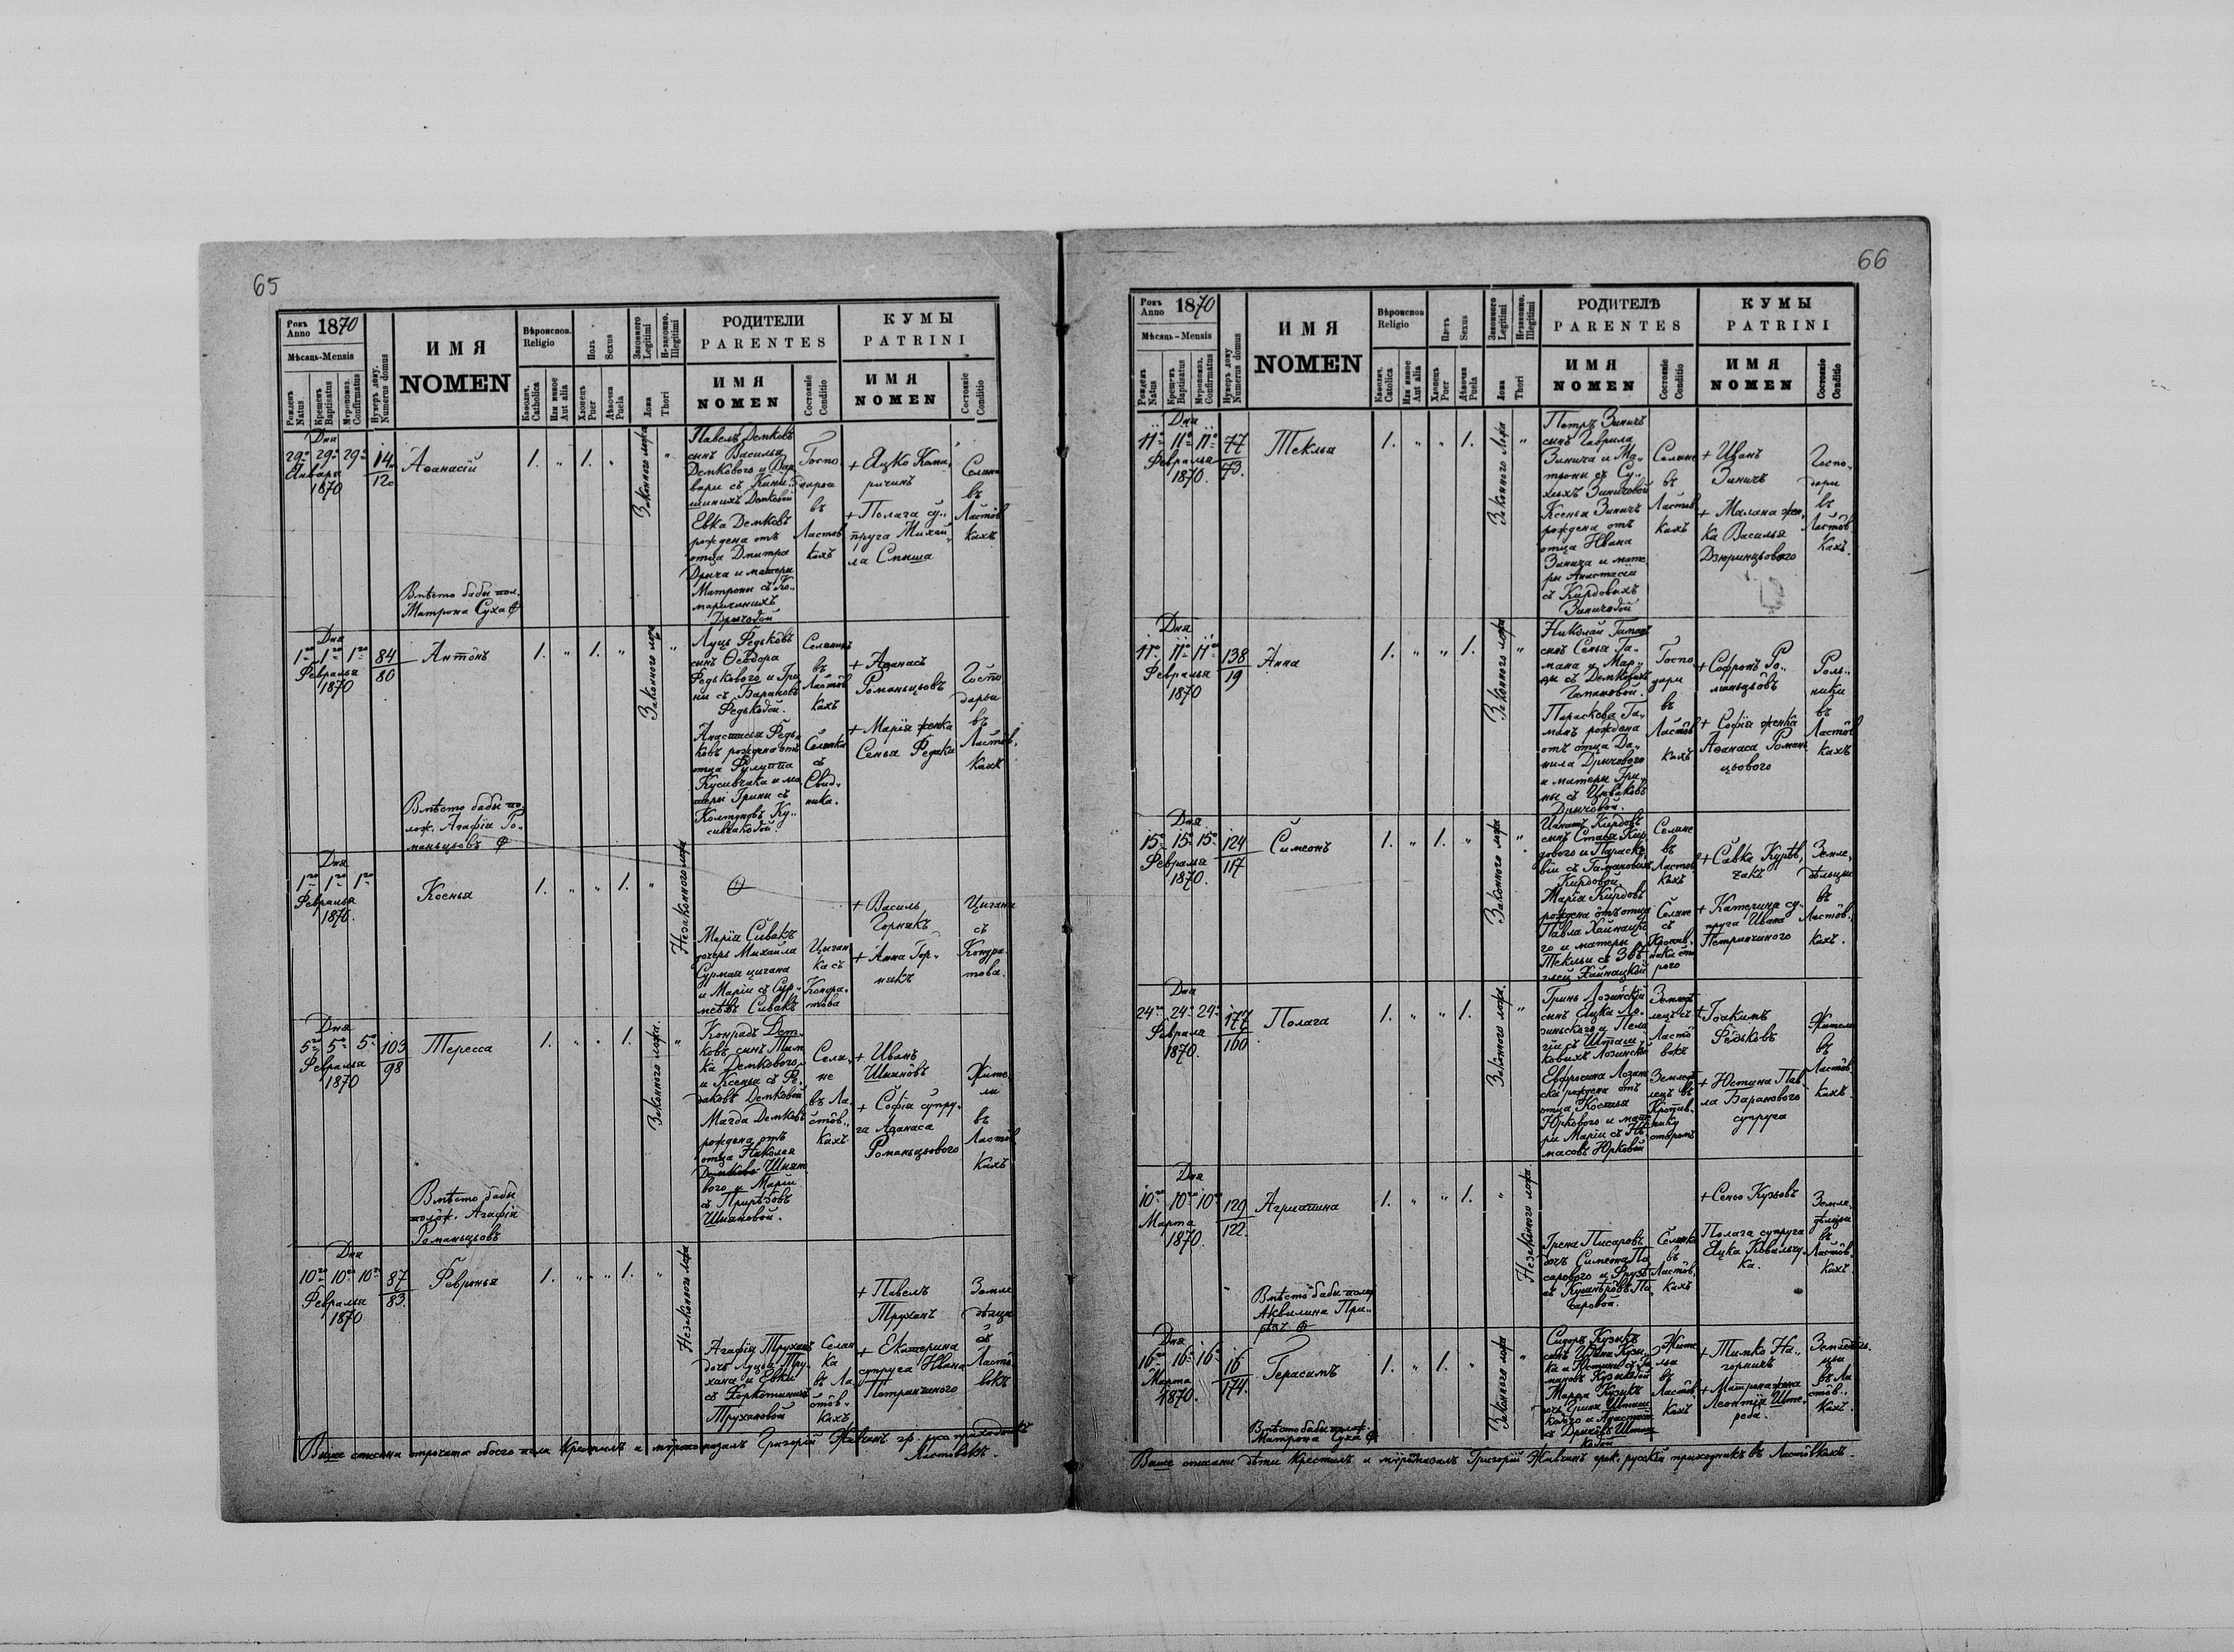 65
Рокъ
Anno 1870
Мѣсяць-Mensis
Рожденъ
Natus
Крещенъ
Baptisatus
Мѵропомаз.
Confirmatus
Нумеръ дому.
Numerus domus
ИМЯ
NOMEN
Вѣроиспов.
Religio
Каѳолич.
Catholica
Или инное
Aut alia
Полъ
Sexus
Хлопецъ
Puer
Дѣвочка
Puela
Законного
Legitimi
Незаконно.
Illegitimi
Ложа
Thori
РОДИТЕЛИ
PARENTES
ИМЯ
NOMEN
Состояніе
Conditio
КУМЫ
PATRINI
ИМЯ
NOMEN
Состояніе
Conditio
Дна
29о 29о 29о
Января
1870
14
120
Аѳанасій
1. „ 1. „
Законного ложа
„
Павелъ Демковъ
сынъ Василья
Демкового и Вар
вари съ
Демковой
Евка Демковъ
рождена отъ
отца Дмитра
Дрыча и матери
Матроны съ Ко„
маричиныхъ
Дрычовой
Госпо
дарѣ
въ
Ластôв
кахъ
+ Яцко Кома„
ричинъ
+ Полага су„
пруга Михай„
ла Спыша
Селяне
въ
Ластôв
кахъ
Вмѣсто бабы пол.
Матрона Суха
Дня
1го 1го 1го
Февраля
1870
84
80
Антôнъ
1. „ 1. „
Законного ложа
„
Луць Федькôвъ
сынъ Ѳеодора
Федькового и Гри
ни съ Баранôвъ
Федьковой.
Анастасья Федь„
ковъ рождена отъ
отца Филиппа
Кусивчака и ма
тери Грини съ
Колтуновъ Ку„
сивчаковой.
Селянинъ
въ
Ластôв
кахъ
Селянка
съ
Свид„
ника.
+ Аѳанасъ
Романьцьовъ
+ Марія женка
Сенья Федака
Госпо
дарьи
въ
Ластôв„
кахъ
Вмѣсто бабы по
лож. Агафія Ро„
маньцьовъ
Дня
1го 1го 1го
Февраля
1870.
Ксенья
1. „ „ 1. „
Незаконного ложа
Марія Сивакъ
дочерь Михайла
Сурмая цигана
и Маріи съ Сур„
меевъ Сивакъ
Циган
ка съ
Кондра„
това
+ Василь
Горнякъ
+ Анна Гор„
някъ
Цигане
съ
Кондра
това.
Дня
5го 5го 5го
Февраля
1870
103
98
Терессa
1. „ „ 1.
Законного ложа.
„
Конрадъ Дем„
ковъ сынъ Тим
ка Демкового
и Ксеньи съ Фе„
даковъ Демковой
Магда Демковъ
рождена отъ
отца Николая
Демково Шпян
вого и Маріи
съ Прирѣзовъ
Шпяновой.
Селя„
не
въ Ла
стôв„
кахъ
+ Иванъ
Шпянôвъ
+ Софія супру„
га Аѳанаса
Романьцьового
Жите
ли
въ
Ластôв
кахъ
Вмѣсто бабы
полож. Агафія
Романьцьовъ
Дня
10го 10го 10го
Февраля
1870
87
83.
Февронья
1. „ „ 1. „
Незаконного ложа
Агафія Труханъ
дочь Луця Тру„
хана и Евки
съ
Трухановой
Селян
ка
въ Ла
стôв„
кахъ
+ Павелъ
Труханъ
+ Екатерина
супруга Ивана
Петричиного
Земле
дѣлци
съ
Ластô
вокъ
Выше списана отрочата обоего пола крестилъ и мѵропомазалъ Григорій Жавчинъ гр. русс приходникъ
Ластовокъ.
66
Рокъ
Anno 1870
Мѣсяць-Mensis
Рожденъ
Natus
Крещенъ
Baptisatus
Мѵропомаз.
Confirmatus
Нумеръ дому
Numerus domus
ИМЯ
NOMEN
Вѣроиспов.
Religio
Каѳолич.
Catholica
Или инное
Aut alia
Sexus
Хлопецъ
Puer
Дѣвочка
Puela
Законного
Legitimi
Незаконно.
Illegitimi
Ложа
Thori
РОДИТЕЛѢ
PARENTES
ИМЯ
NOMEN
Состояніе
Conditio
КУМЫ
PATRINI
ИМЯ
NOMEN
Состояніе
Conditio
Дна
11го 11го 11го
Февраля
1870.
77
73.
Текля
1. „ „ 1.
Законного ложа
„
Петръ Зиничъ
сынъ Гаврила
Зинича и Ма„
троны съ Су„
хихъ Зиничовой
Ксенья Зиничъ
рождена отъ
отца Ивана
Зинича и мате
ри Анастасіи
съ Кирдовыхъ
Зиничовой
Селяне
въ
Ластôв
кахъ
+ Иванъ
Зиничъ
+ Малана жен„
ка Василья
Дзюринцьового
Госпо„
дари
въ
Ластôв
кахъ.
Дня
11го 11го 11го
Февраля
1870
138
19
Анна
1. „ „ 1.
Законного ложа
„
Николай Гаманъ
сынъ Сенья Га„
мана и Мар„
ьи съ Демковыхъ
Гамановой.
Параскева Га„
манъ рождена
отъ отца Да„
нила Дрычового
и матери Гри„
ны съ
Дрычовой.
Госпо
дари
въ
Ластôв
кахъ
+ Софронъ Ро„
маньцьôвъ
+ Софія женка
Аѳанаса Романь
цьового
Роль„
ники
въ
Ластôв
кахъ
Дня
15го 15го 15го
Февраля
1870.
124
117
Симеонъ
1. „ 1. „
Законного ложа
„
Игнатъ Кирдовъ
сынъ Стася Кир
дового и Параске„
віи съ Гамановыхъ
Кирдовой
Марія Кирдовъ
рождена отъ отца
Павла Хайнацко
го и матери
Текльи съ
Хайнацкой
Селяне
въ
Ластов
кахъ
Селяне
съ
Кропив„
ника ста
рого
+ Савка Курѣв„
чакъ
+ Катерина су„
пруга Ивана
Петричиного
Земле„
дѣльци
въ
Ластôв„
кахъ.
Дня
24го 24го 24го
Февраля
1870.
177
160
Полага
1. „ „ 1.
Законного ложа.
„
Гринь Лозинскій
сынъ Яцка Ло„
зинського и Пела
гіи съ Шпаш„
ковихъ Лозинской
Евфросина Лозин
ска рождена отъ
отца Костья
Юркового и мате
ри Маріи съ
масовъ Юрковой
Землед
лецъ съ
Ластô
вокъ
Землед
лецъ въ
Кропив„
нику
старомъ
+ Іоакимъ
Федьковъ
+ Юстина Пав
ла Баранового
супруга
Жители
въ
Ластôв„
кахъ
Дня
10го 10го 10го
Марта
1870.
129
122.
Агрипина
1. „ „ 1. „
Незаконного ложа.
Ірена Писаровъ
дочь Симеона Пи
сарового и Фрузь
съ Кушнѣровъ Пи
саровой.
Селянка
въ
Ластôв„
кахъ
+ Сеньо Кузьовъ
Полага супруга
Яцка Ковальчу„
ка.
Земле„
дѣльци
въ
Ластôв„
кахъ.
Вмѣсто бабы полож
Аквилина При„
рѣзъ
Дня
16го 16го 16го
Марта
1870.
16
174.
Герасимъ
1. „ 1. „
Законного ложа
„
Сидоръ Кузыкъ
сынъ Ивана Кузы
ка и Юстины съ Га
мановъ Кузыковой
Марія Кузыкъ
дочь Гриня Шпаш
кового и Анастасіи
съ Дрычôвъ Шпаш
ковой
Жите
льи
въ
Ластôв
кахъ
+ Тимко На„
горничъ
+ Матрона жена
Леонтія Ште„
реба.
Земледѣль„
ци
въ Ла
стôв„
кахъ.
Вмѣсто бабы полож.
Матрона Суха
Выше списани дѣти крестилъ и мѵропомазалъ Григорій Жавчинъ грек. русскій приходникъ въ Ластôвкахъ.